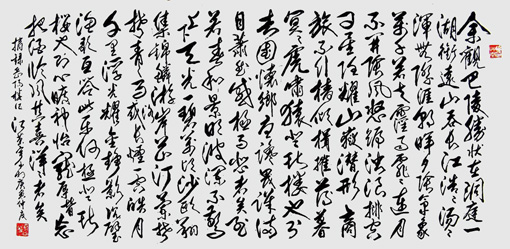 余觀巴陵勝狀在洞庭一
湖銜遠山吞長江浩浩湯湯
渾無際涯朝暉夕陰氣象
萬千若夫霪雨霏霏連月
不開陰風怒號濁浪排空
日星隱耀山嶽潛形商
旅不行檣傾楫摧薄暮
冥冥虎嘯猿啼登樓也則
去國懷鄉憂讒畏譏滿
目蕭然感極而悲者矣至
若春和景明波瀾不驚
上下天光一碧萬頃沙鷗翔
集錦鱗游泳岸芷汀蘭郁
郁青青而或長煙一空皓月
千里浮光耀金靜影沉璧
漁歌互答此樂何極登斯
樓也則心曠神怡寵辱皆忘
把酒臨風其喜洋洋者矣